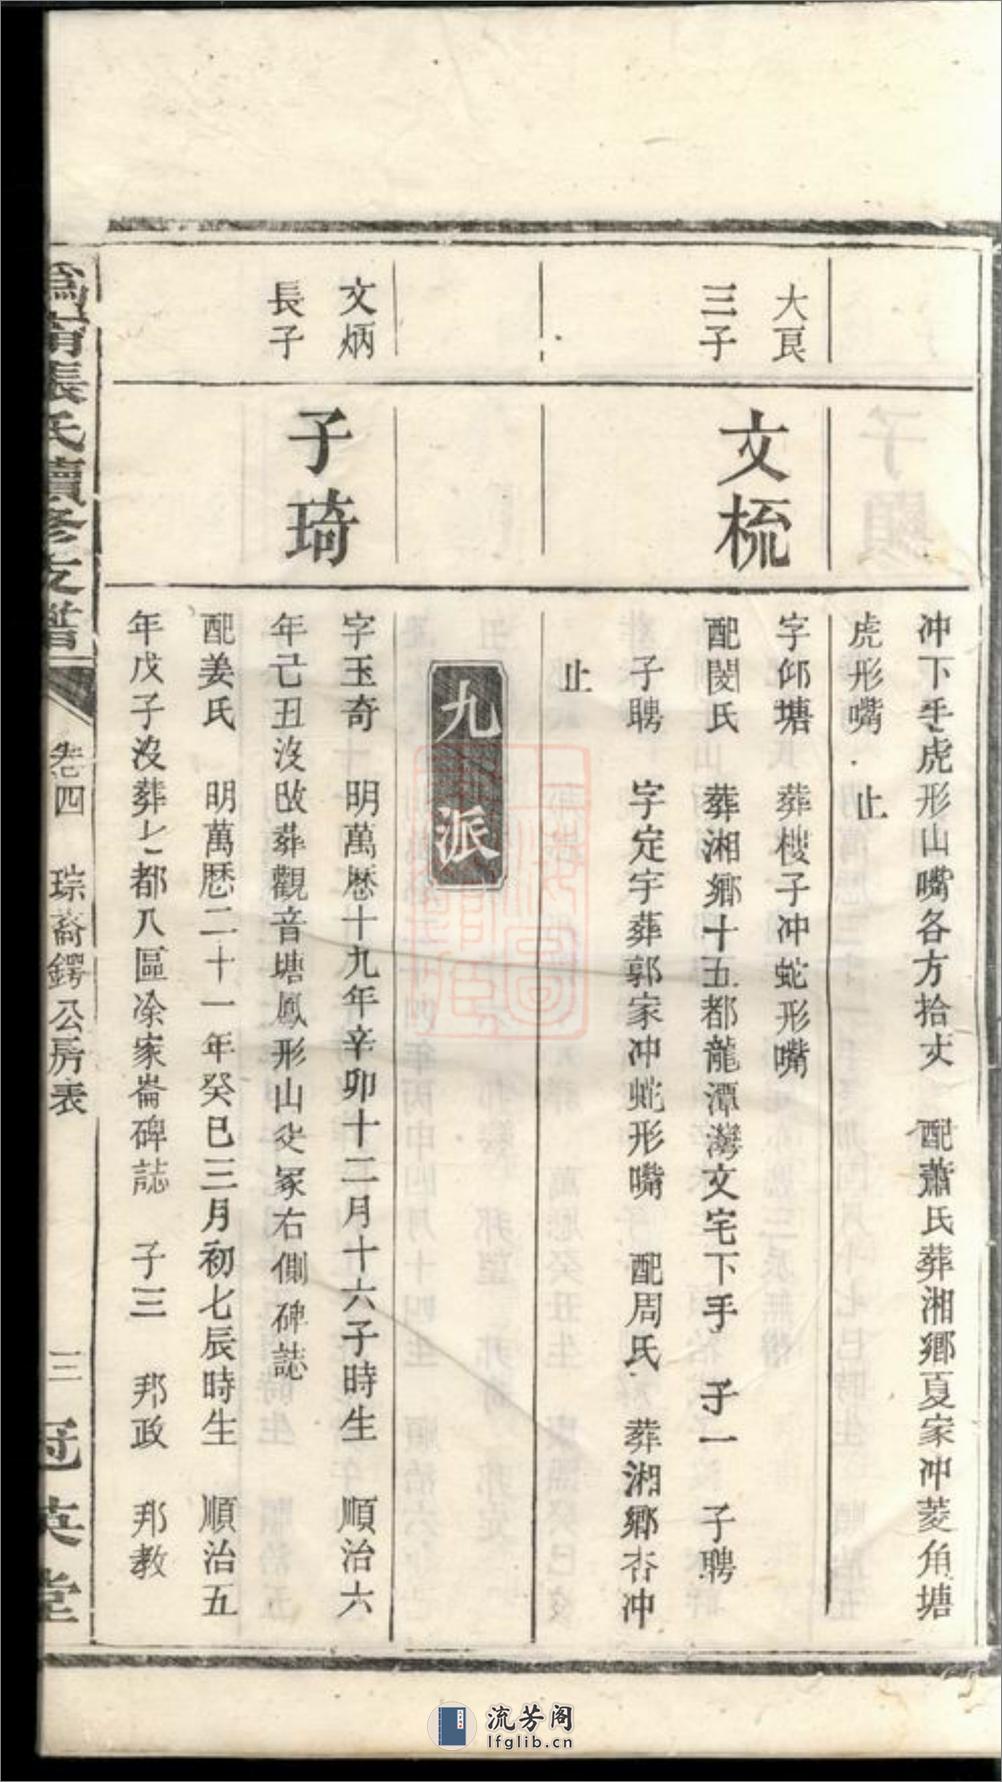 冲下手虎形山嘴各方拾丈 配蕭氏葬湘鄉夏家冲菱角塘
虎形嘴 止
大良
三子
文梳
字仰塘 葬樓子冲蛇形嘴
配閔氏 葬湘鄉十五都龍潭灣文宅下手 子一 子聘
子聘 字定宇葬郭家冲蛇形嘴 配周氏 葬湘鄉杏冲
止
九派
文炳
長子
子琦
字玉奇 明萬曆十九年辛卯十二月十六子時生 順治六
年己丑沒改葬觀音塘鳳形山父冢右側碑誌
配姜氏 明萬曆二十一年癸巳三月初七辰時生 順治五
年戊子沒葬七都八區凃家崙碑誌 子三 邦政 邦教
溈甯張氏續修支譜 卷四 琮裔鍔公房表 三 冠英堂
流芳阁
lfglib.cn